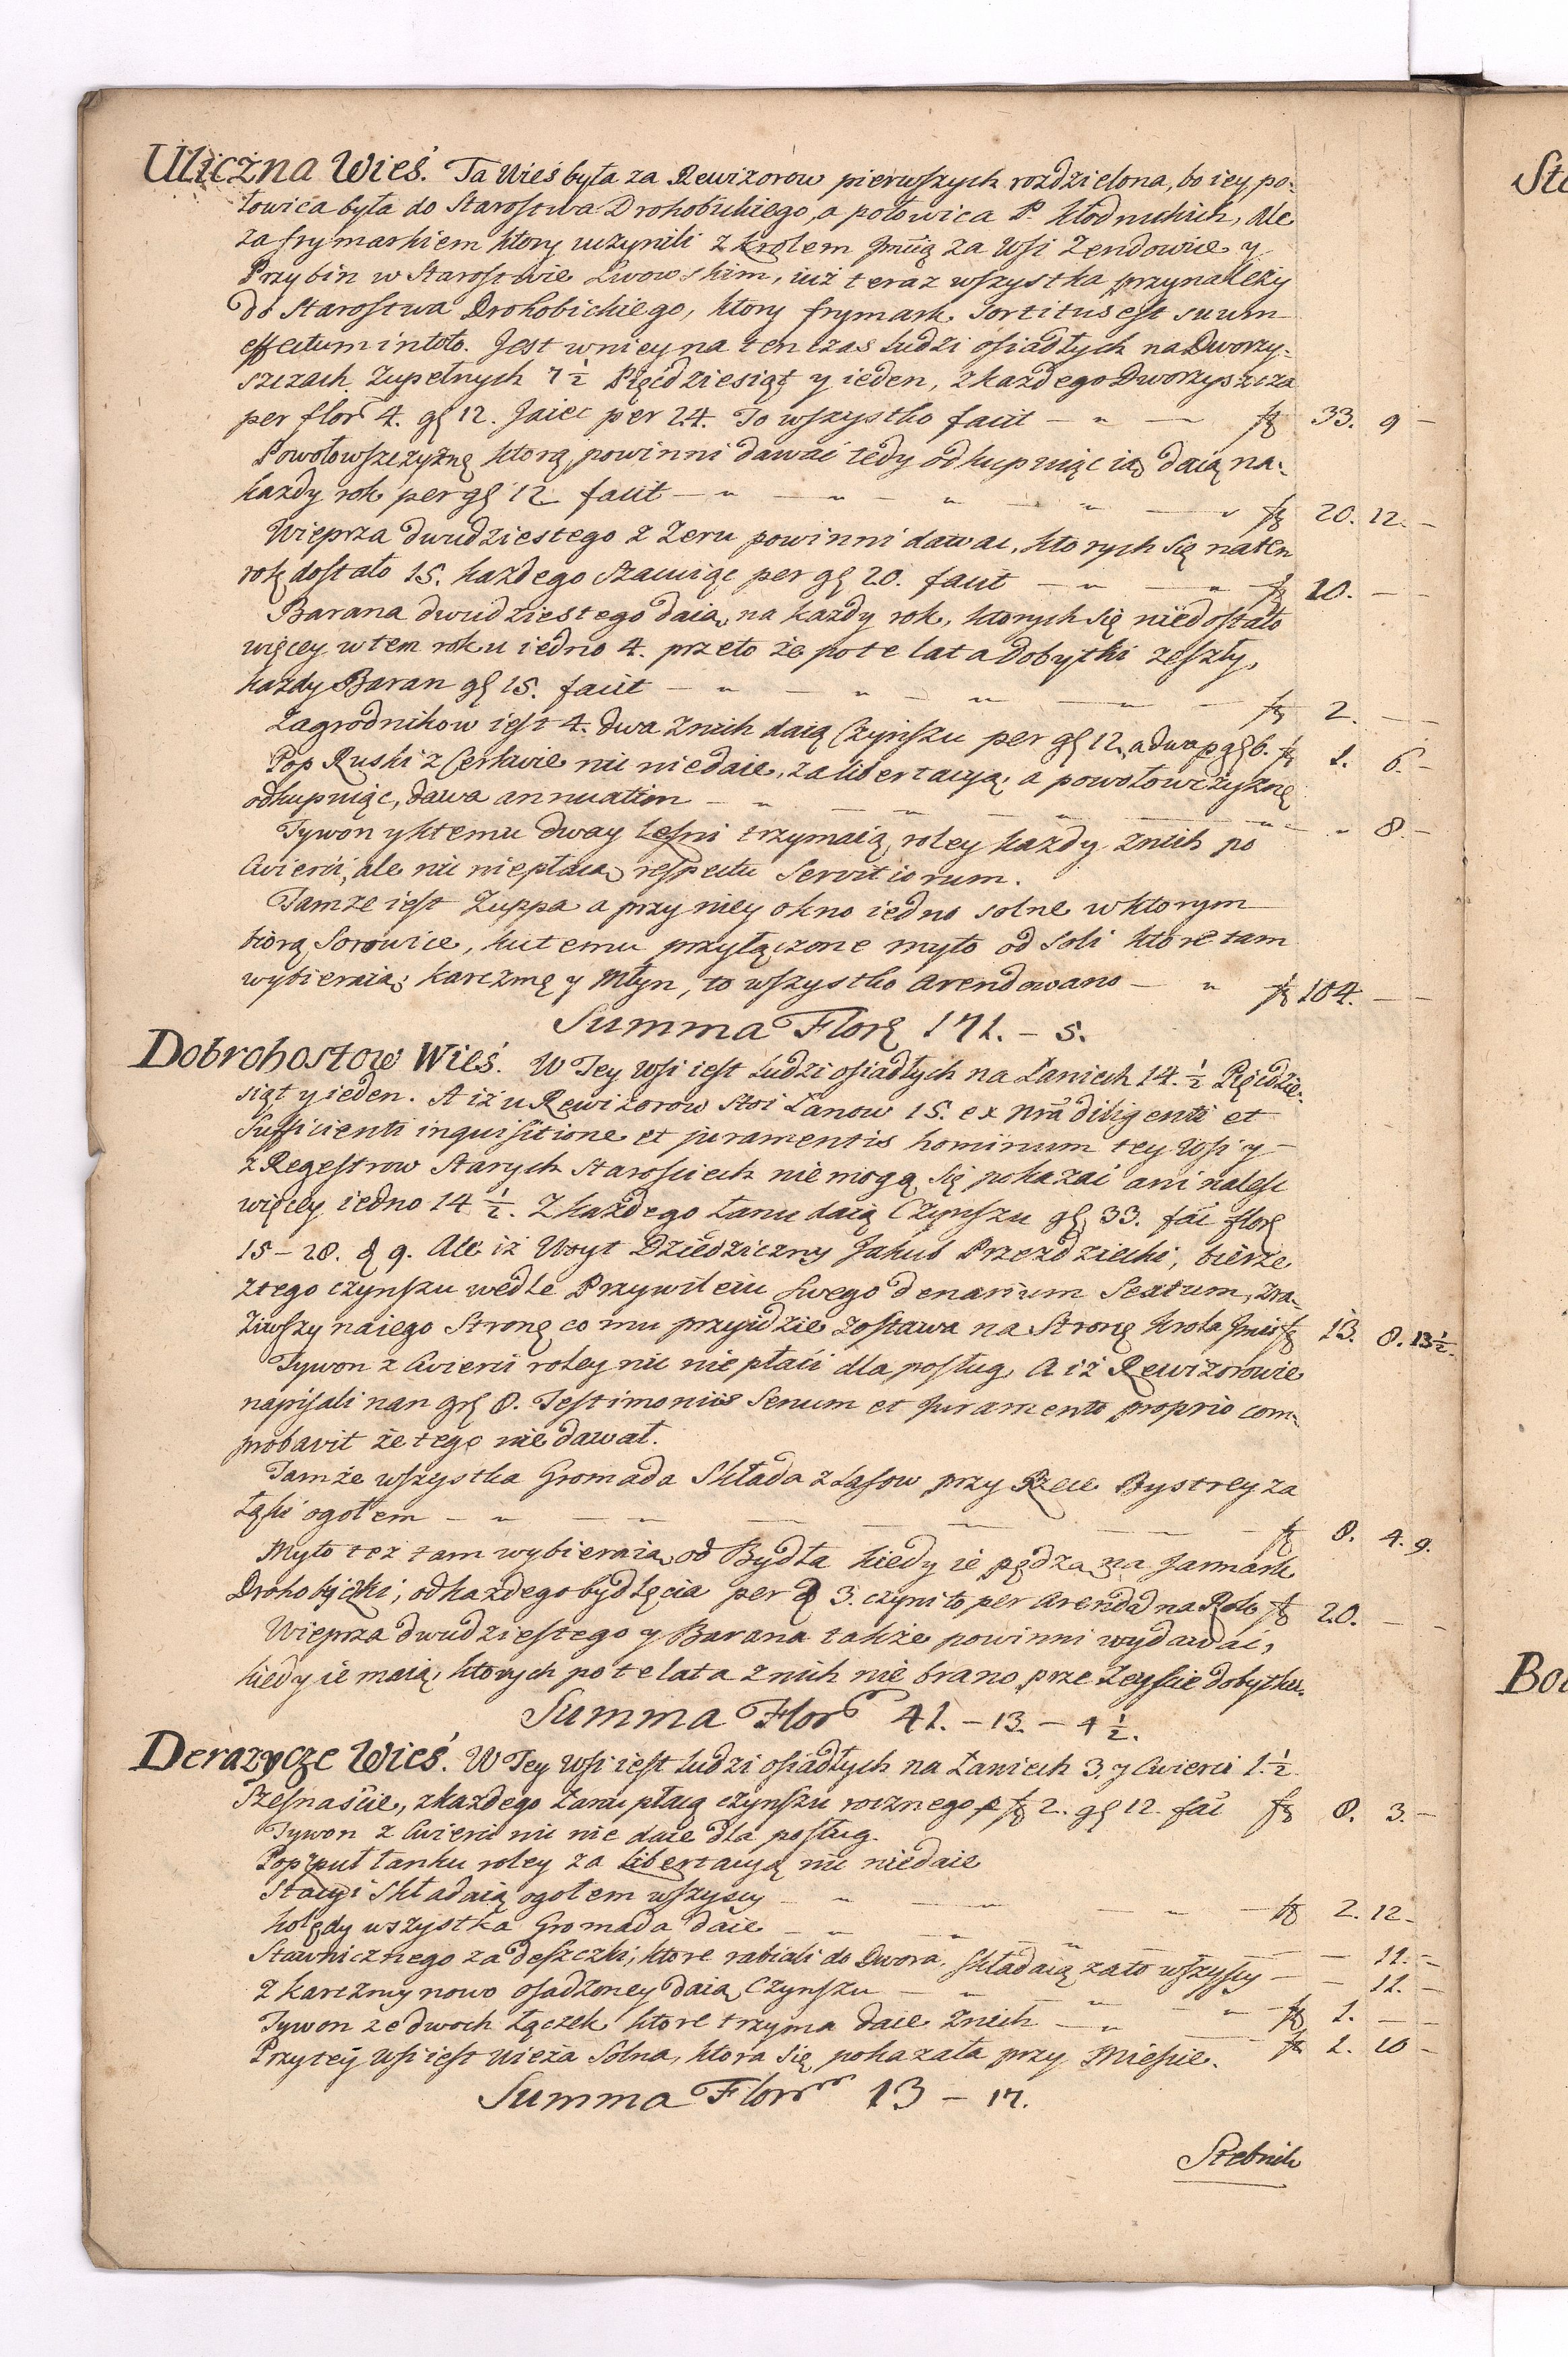 Uliczna Wieś. Ta Wieś była za Rewizorow pierwszych rozdzielona, bo iey po-
łowica była do Starostwa Drohobickiego, a połowica P. Kłodnickich, Ale
za frymarkiem ktory uczynili z Krolem Jmią za Wsi Zendowice y
Przybin w Starostwie Lwowskim, iuż teraz wszystka przynależy
do Starostwa Drohobickiego, ktory frymark sortitus est suum
effectum intoto. Jest wniey na ten czas Ludzi osiadłych na Dworzy-
szczach zupełnych 7 1/2 Pięćdziesiąt y ieden, z każdego Dworzyszcza
per flor 4. gr 12. Jaiec per 24. To wszystko facit — " — fl 33. 9 —
Powołowszczyznę ktorą powinni dawać tedy odkupuiąc ią daią na
każdy rok per gr 12 facit — " — " — " — " fl 20. 12. —
Wieprza dwudziestego z Zeru powinni dawac, ktorych się naten
rok dostało 15. każdego szacuiąc per gr 20. facit — " — " fl 20. — —
Barana dwudziestego daią na każdy rok, ktorych się niedostało
więcey wtem roku iedno 4. przeto że pote lata dobytki zeszły,
każdy Baran gr 15. facit — " — " — " — fl 2. — —
Zagrodnikow iest 4. dwa znich daią Czynszu per gr 12, a dwa p gr 6. fl 1. 6. —
Pop Ruski z Cerkwie nic niedaie, za libertacyą, a powołowczyznę
odkupuiąc, dawa annuatim — " — — — " — " 8. —
Tywon yktemu dway Leśni trzymaią roley każdy znich po
Cwierci, ale nic niepłacą respectu Servitiorum.
Tamże iest Zuppa a przy niey okno iedno solne wktorym
biorą Sorowice, kutemu przyłączone myto od Soli ktore tam
wybieraią, Karczmę y Młyn, to wszystko arendowano — " fl 104. — —
Summa Flor 171. — 5.
Dobrohostow Wieś. W Tey Wsi iest Ludzi osiadłych na Łaniech 14. 1/2 Pięcdzie-
siąt y ieden. A iż u Rewizorow stoi Łanow 15. ex nra diligenti et
Sufficienti inquisitione et juramentis hominum tey Wsi y
z Regestrow Starych Starościech niemogą się pokazać ani naleść
więcey iedno 14 1/2. Z każdego Łanu daią Czynszu gr 33. fac flor
15 — 28. d 9. Ale iż Woyt Dziedziczny Jakub Przezdziecki, bierze
z tego czynszu wedle Przywileiu swego denarium Sextum, zra-
ziwszy naiego Stronę co mu przyidzie zostawa na Stronę Krola Jmis fl 13. 8. 13 1/2.
Tywon z Cwierci roley nic niepłaci dla posług, A iż Rewizorowie
napisali nan gr 8. Testimoniis Senum et Juramento proprio com-
probavit że tego nie dawał.
Tamże wszystka Gromada Składa z Lasow przy Rzece Bystrey za
Łąki ogołem — " — — — — — fl 8. 4. 9.
Myto tez tam wybieraią od Bydła kiedy ie pędzą na Jarmark
Drohobyczki, od każdego bydlęcia per d 3. czyni to per Arendą na Rok fl 20. — —
Wieprza dwudziestego y Barana także powinni wydawać,
kiedy ie maią, ktorych po te lata z nich nie brano prze zeyście dobytku.
Summa Flor 41. — 13. — 4 1/2.
Derazycze Wieś. W Tey Wsi iest Ludzi osiadłych na Łaniech 3. y Cwierci 1. 1/2
Szesnaście, z każdego Łanu płacą czynszu rocznego p fl 2. gr 12. fac fl 8. 3. —
Tywon z Cwierci nic nie daie dla posług.
Pop puł Łanku roley za libertacyą nic niedaie
Stacyi Składaią ogołem wszyscy — " — — — " — fl 2. 12 —
Kolędy wszystka Gromada daie — " — — " — — — 11. —
Stawnicznego za deszczki, ktore rabiali do Dwora, składaią zato wszyscy — — 11. —
z Karczmy nowo osadzoney daią Czynszu — " — " — " — fl 1. — —
Tywon ze dwoch Łączek ktore trzyma daie znich — " — fl 1. 10 —
Przytey Wsi iest wieża Solna, ktora się pokazała przy Mieście.
Summa Flor 13 — 17.
Stebnik